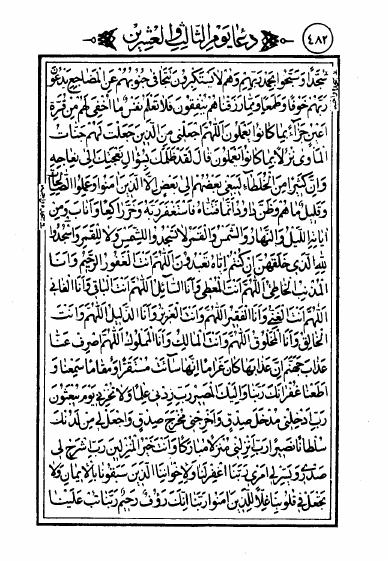 دعاء يوم الثالث والعشرين
٤٨٢
سجدا وسبحوا بحمد ربهم وهم لا يستكبرون تتجافى جنوبهم عن المضاجع يدعون
ربهم خوفا وطمعا ومما رزقناهم ينفقون فلا تعلم نفس ما اخفي لهم من قرة
اعين جزاء بما كانوا يعملون اللهم اجعلني من الذين جعلت لهم جنات
الماوى نزلا بما كانوا يعملون قال لقد ظلمك بسؤال نعجتك الى نعاجه
وان كثيرا من الخلطاء ليبغي بعضهم الى بعض الا الذين امنوا وعملوا الصالحات
وقليل ما هم وظن داود انما فتناه فاستغفر ربه وخر راكعا واناب ومن
اياته الليل والنهار والشمس والقمر لا تسجدوا للشمس ولا للقمر واسجدوا
لله الذي خلقهن ان كنتم اياه تعبدون اللهم انت الغفور الرحيم وانا
المذنب الخاطئ اللهم انت المعطي وانا السائل اللهم انت الباقي وانا الفاني
اللهم انت الغني وانا الفقير اللهم وانت العزيز وانا الذليل اللهم وانت
الخالق وانا المخلوق اللهم وانت المالك وانا المملوك اللهم اصرف عنا
عذاب جهنم ان عذابها كان غراما انها ساءت مستقرا ومقاما سمعنا و
اطعنا غفرانك ربنا واليك المصير رب زدني علما ولا تخزني يوم يبعثون
رب ادخلني مدخل صدق واخرجني مخرج صدق واجعل لي من لدنك
سلطانا نصيرا رب انزلني منزلا مباركا وانت خير المنزلين رب اشرح لي
صدري ويسر لي امري ربنا اغفر لنا ولاخواننا الذين سبقونا بالايمان ولا
تجعل في قلوبنا غلا للذين امنوا ربنا انك رؤف رحيم ربنا تب علينا